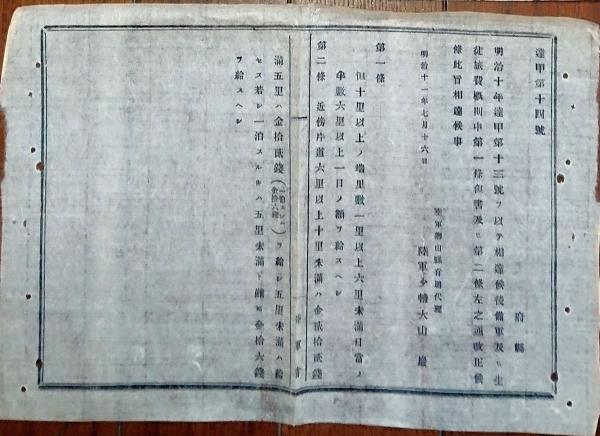 達甲第十四號
府縣
明治十年達甲第十三號ヲ以テ相達候後備軍及ヒ生
徒旅費概則中第一條但書及ヒ第二條左之通改正候
條此旨相達候事
明治十一年七月十六日
陸軍卿山縣有朋代理
陸軍少輔大山巖
第一條
但十里以上ノ端里數一里以上六里未滿日當ノ
半數六里以上一日ノ額ヲ給スヘシ
第二條 近傍片道六里以上十里未滿ハ金貳拾貳錢
陸軍省
滿五里ハ金拾貳錢
ヲ給シ五里未滿ハ給
セス若シ一泊スル時ハ五里未滿ト雖モ金拾六錢
ヲ給スヘシ